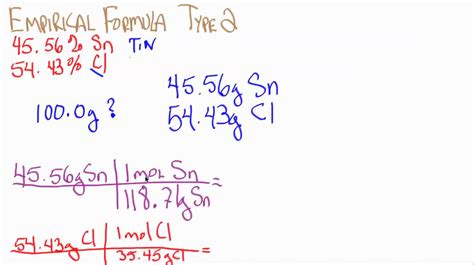 EMPIRICAL FORMULA TYPE 2
45.56% Sn TIN
54.43% Cl
100.0g ?
45.56g Sn
54.43g Cl
45.56g Sn | 1 mol Sn =
118.71g Sn
54.43g Cl | 1 mol Cl =
35.45g Cl